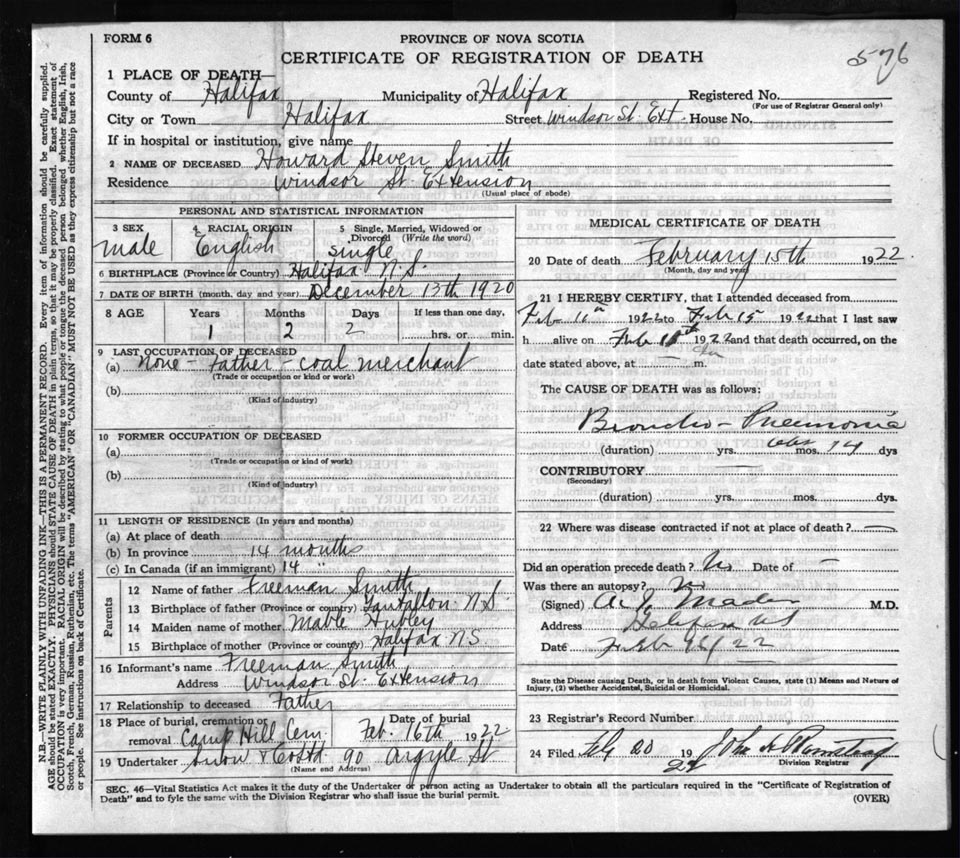 FORM 6
PROVINCE OF NOVA SCOTIA
CERTIFICATE OF REGISTRATION OF DEATH
576
1 PLACE OF DEATH—
County of Halifax Municipality of Halifax Registered No.
(For use of Registrar General only)
City or Town Halifax Street Windsor St. Ext. House No.
If in hospital or institution, give name
2 NAME OF DECEASED Howard Steven Smith
Residence Windsor St. Extension
(Usual place of abode)
PERSONAL AND STATISTICAL INFORMATION
3 SEX 4 RACIAL ORIGIN 5 Single, Married, Widowed or
Divorced (Write the word)
male English single
6 BIRTHPLACE (Province or Country) Halifax N.S.
7 DATE OF BIRTH (month, day and year) December 13th 1920
8 AGE Years Months Days If less than one day,
1 2 2 hrs. or min.
9 LAST OCCUPATION OF DECEASED
(a) none - Father - coal merchant
(Trade or occupation or kind or work)
(b)
(Kind of industry)
10 FORMER OCCUPATION OF DECEASED
(a)
(Trade or occupation or kind of work)
(b)
(Kind of industry)
11 LENGTH OF RESIDENCE (In years and months)
(a) At place of death
(b) In province 14 months
(c) In Canada (if an immigrant) 14 "
Parents
12 Name of father Freeman Smith
13 Birthplace of father (Province or country) Tantallon N.S.
14 Maiden name of mother Mable Hubley
15 Birthplace of mother (Province or country) Halifax N.S.
16 Informant's name Freeman Smith
Address Windsor St. Extension
17 Relationship to deceased Father
18 Place of burial, cremation or Date of burial
removal Camp Hill Cem. Feb. 16th 1922
19 Undertaker Snow & Co Ltd 90 Argyle St
(Name and Address)
MEDICAL CERTIFICATE OF DEATH
20 Date of death February 15th 1922
(Month, day and year)
21 I HEREBY CERTIFY, that I attended deceased from
Feb 11th 1922 to Feb 15 1922 that I last saw
h alive on Feb 1922 and that death occurred, on the
date stated above, at m.
The CAUSE OF DEATH was as follows:
Broncho-Pneumonia
(duration) yrs. mos. 14 dys
CONTRIBUTORY
(Secondary)
(duration) yrs. mos. dys.
22 Where was disease contracted if not at place of death?
Did an operation precede death? No Date of —
Was there an autopsy? No
(Signed) Mader M.D.
Address Halifax NS
Date Feb 22
State the Disease causing Death, or in death from Violent Causes, state (1) Means and Nature of
Injury, (2) whether Accidental, Suicidal or Homicidal.
23 Registrar's Record Number
24 Filed 20 19 22 John
Division Registrar
SEC. 46—Vital Statistics Act makes it the duty of the Undertaker or person acting as Undertaker to obtain all the particulars required in the "Certificate of Registration of
Death" and to fyle the same with the Division Registrar who shall issue the burial permit.
(OVER)
N.B.—WRITE PLAINLY WITH UNFADING INK—THIS IS A PERMANENT RECORD. Every item of information should be carefully supplied.
AGE should be stated EXACTLY. PHYSICIANS should STATE CAUSE OF DEATH in plain terms, so that it may be properly classified. Exact statement of
OCCUPATION is very important. RACIAL ORIGIN will be described by stating to what people or tongue the deceased person belonged, whether English, Irish,
Scotch, French, German, Russian, Ruthenian, etc. The terms "AMERICAN" OR "CANADIAN" MUST NOT BE USED as they express citizenship but not a race
or people. See instructions on back of Certificate.